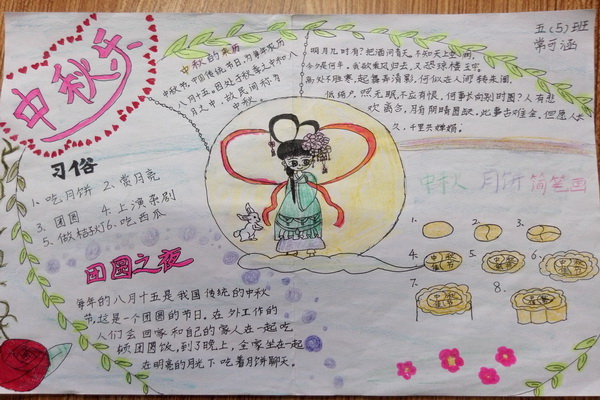 五(5)班
常可涵
中秋乐
中秋的来历
中秋节,中国传统节日,为每年农历
八月十五,因处于秋季之中和八
月之中,故民间称为
中秋。
明月几时有?把酒问青天,不知天上宫阙,
今夕是何年,我欲乘风归去,又恐琼楼玉宇,
高处不胜寒,起舞弄清影,何似在人间转朱阁,
低绮户,照无眠,不应有恨,何事长向别时圆?人有悲
欢离合,月有阴晴圆缺,此事古难全,但愿人长
久,千里共婵娟。
习俗
1、吃月饼 2、赏月亮
3、团圆 4、上演
5、做桔灯 6、吃西瓜
团圆之夜
每年的八月十五是我国传统的中秋
节,这是一个团圆的节日,在外工作的
人们会回家和自己的家人在一起吃
顿团圆饭,到了晚上,全家坐在一起
在明亮的月光下吃着月饼聊天。
中秋 月饼 简笔画
1. 2. 3.
4. 中秋 5. 中秋 6. 中秋
7. 8.